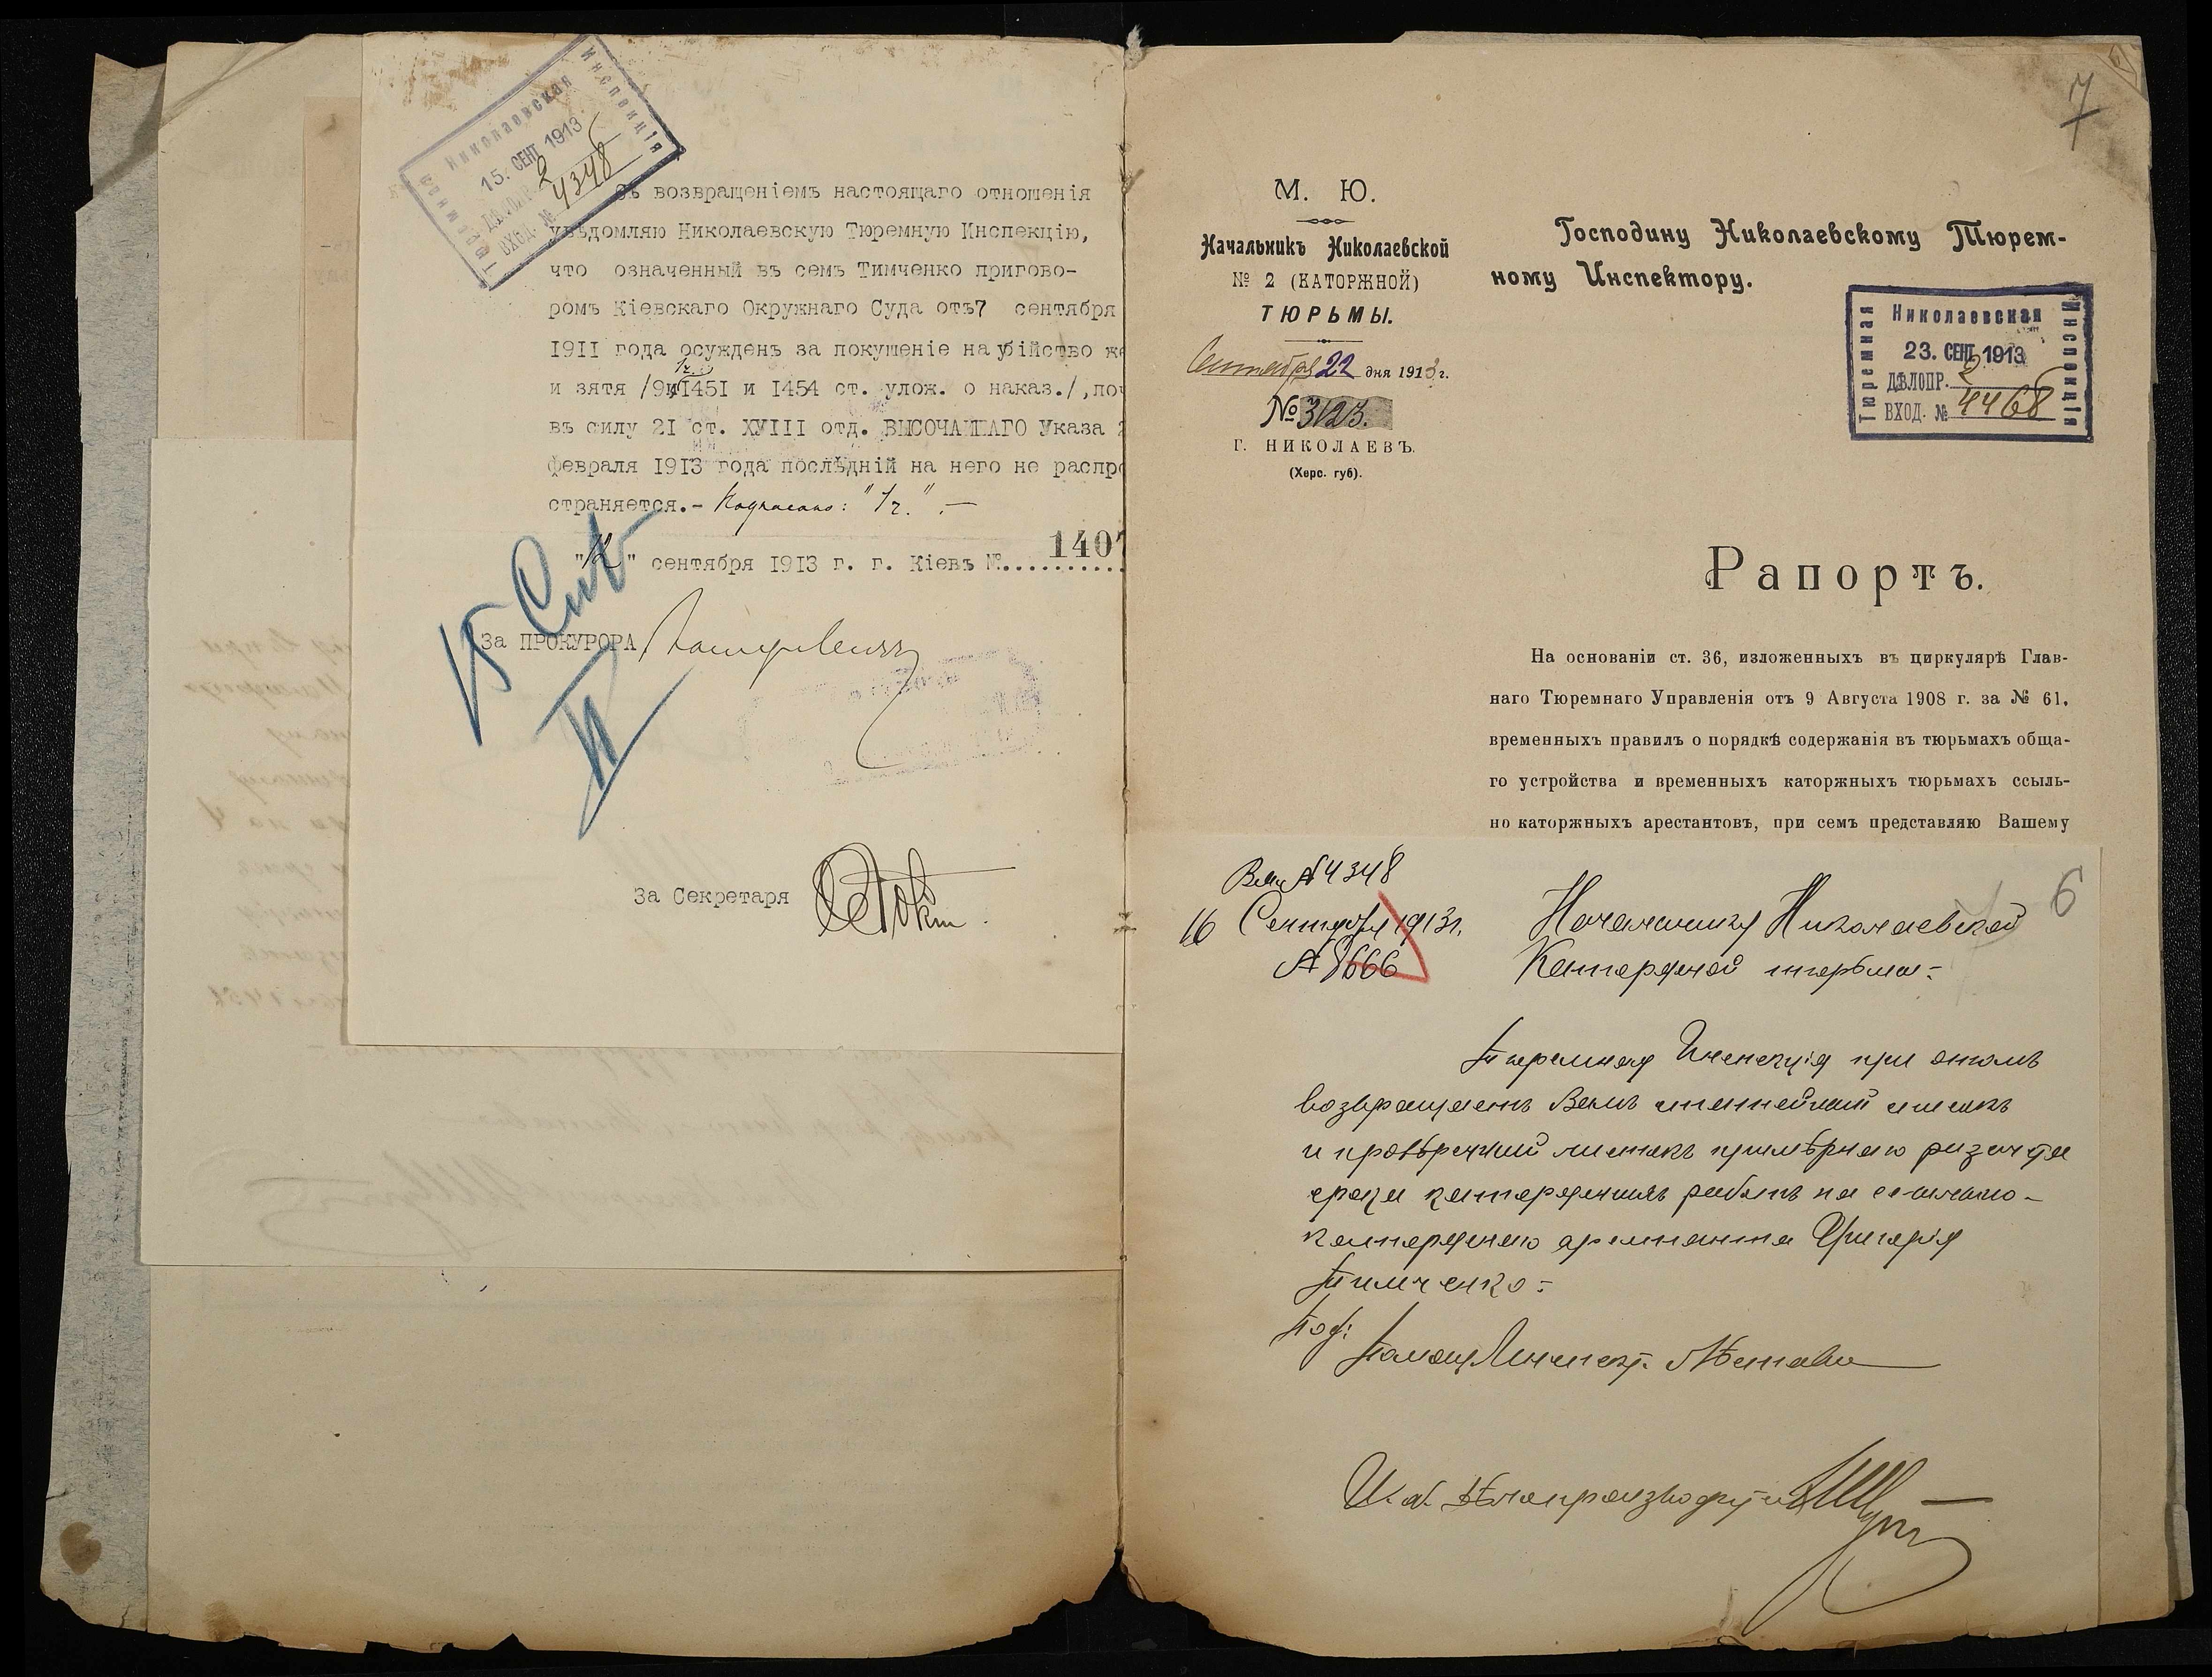 Николаевская
Тюремная
Инспекція
15. СЕНТ 1913
ВХОД. № 4348
Съ возвращеніемъ настоящаго отношенія
увѣдомляю Николаевскую Тюремную Инспекцію,
что означенный въ семъ Тимченко пригово-
ромъ Кіевскаго Окружнаго Суда отъ 7 сентября
1911 года осужденъ за покушеніе на убійство же
и зятя /9 и 1451 и 1454 ст. улож. о наказ./, по
въ силу 21 ст. XVIII отд. ВЫСОЧАЙШАГО Указа 2
февраля 1913 года послѣдній на него не распро
страняется.-
"12" сентября 1913 г. г. Кіевъ №
1407
15 Сент
За ПРОКУРОРА
За Секретаря
7
М. Ю.
Начальникъ Николаевской
№ 2 (КАТОРЖНОЙ)
ТЮРЬМЫ.
Сентября 22 дня 1913 г.
№ 3123.
Г. НИКОЛАЕВЪ.
(Херс. губ).
Господину Николаевскому Тюрем-
ному Инспектору.
Николаевская
Тюремная
Инспекція
23. СЕНТ 1913
ДѢЛОПР. 2
ВХОД. № 4468
Рапортъ.
На основаніи ст. 36, изложенныхъ въ циркулярѣ Глав-
наго Тюремнаго Управленія отъ 9 Августа 1908 г. за № 61.
временныхъ правилъ о порядкѣ содержанія въ тюрьмахъ обща-
го устройства и временныхъ каторжныхъ тюрьмахъ ссыль-
но каторжныхъ арестантовъ, при семъ представляю Вашему
6
№ 4348
16 Сентября 1913 г.
№ 8666
Начальнику Николаевской
Каторжной тюрьмы.
Тюремная Инспекція при этомъ
возвращаетъ Вамъ статейный списокъ
и провѣрочный листокъ примѣрнаго разсчета
срока каторжныхъ работъ на ссыльно-
каторжнаго арестанта Григорія
Тимченко.
Под:
И. д. Дѣлопроизводителя